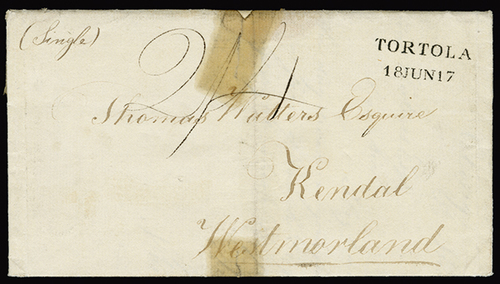 (Single)
2/1
TORTOLA
18JUN17
Thomas Watters Esquire
Kendal
Westmorland